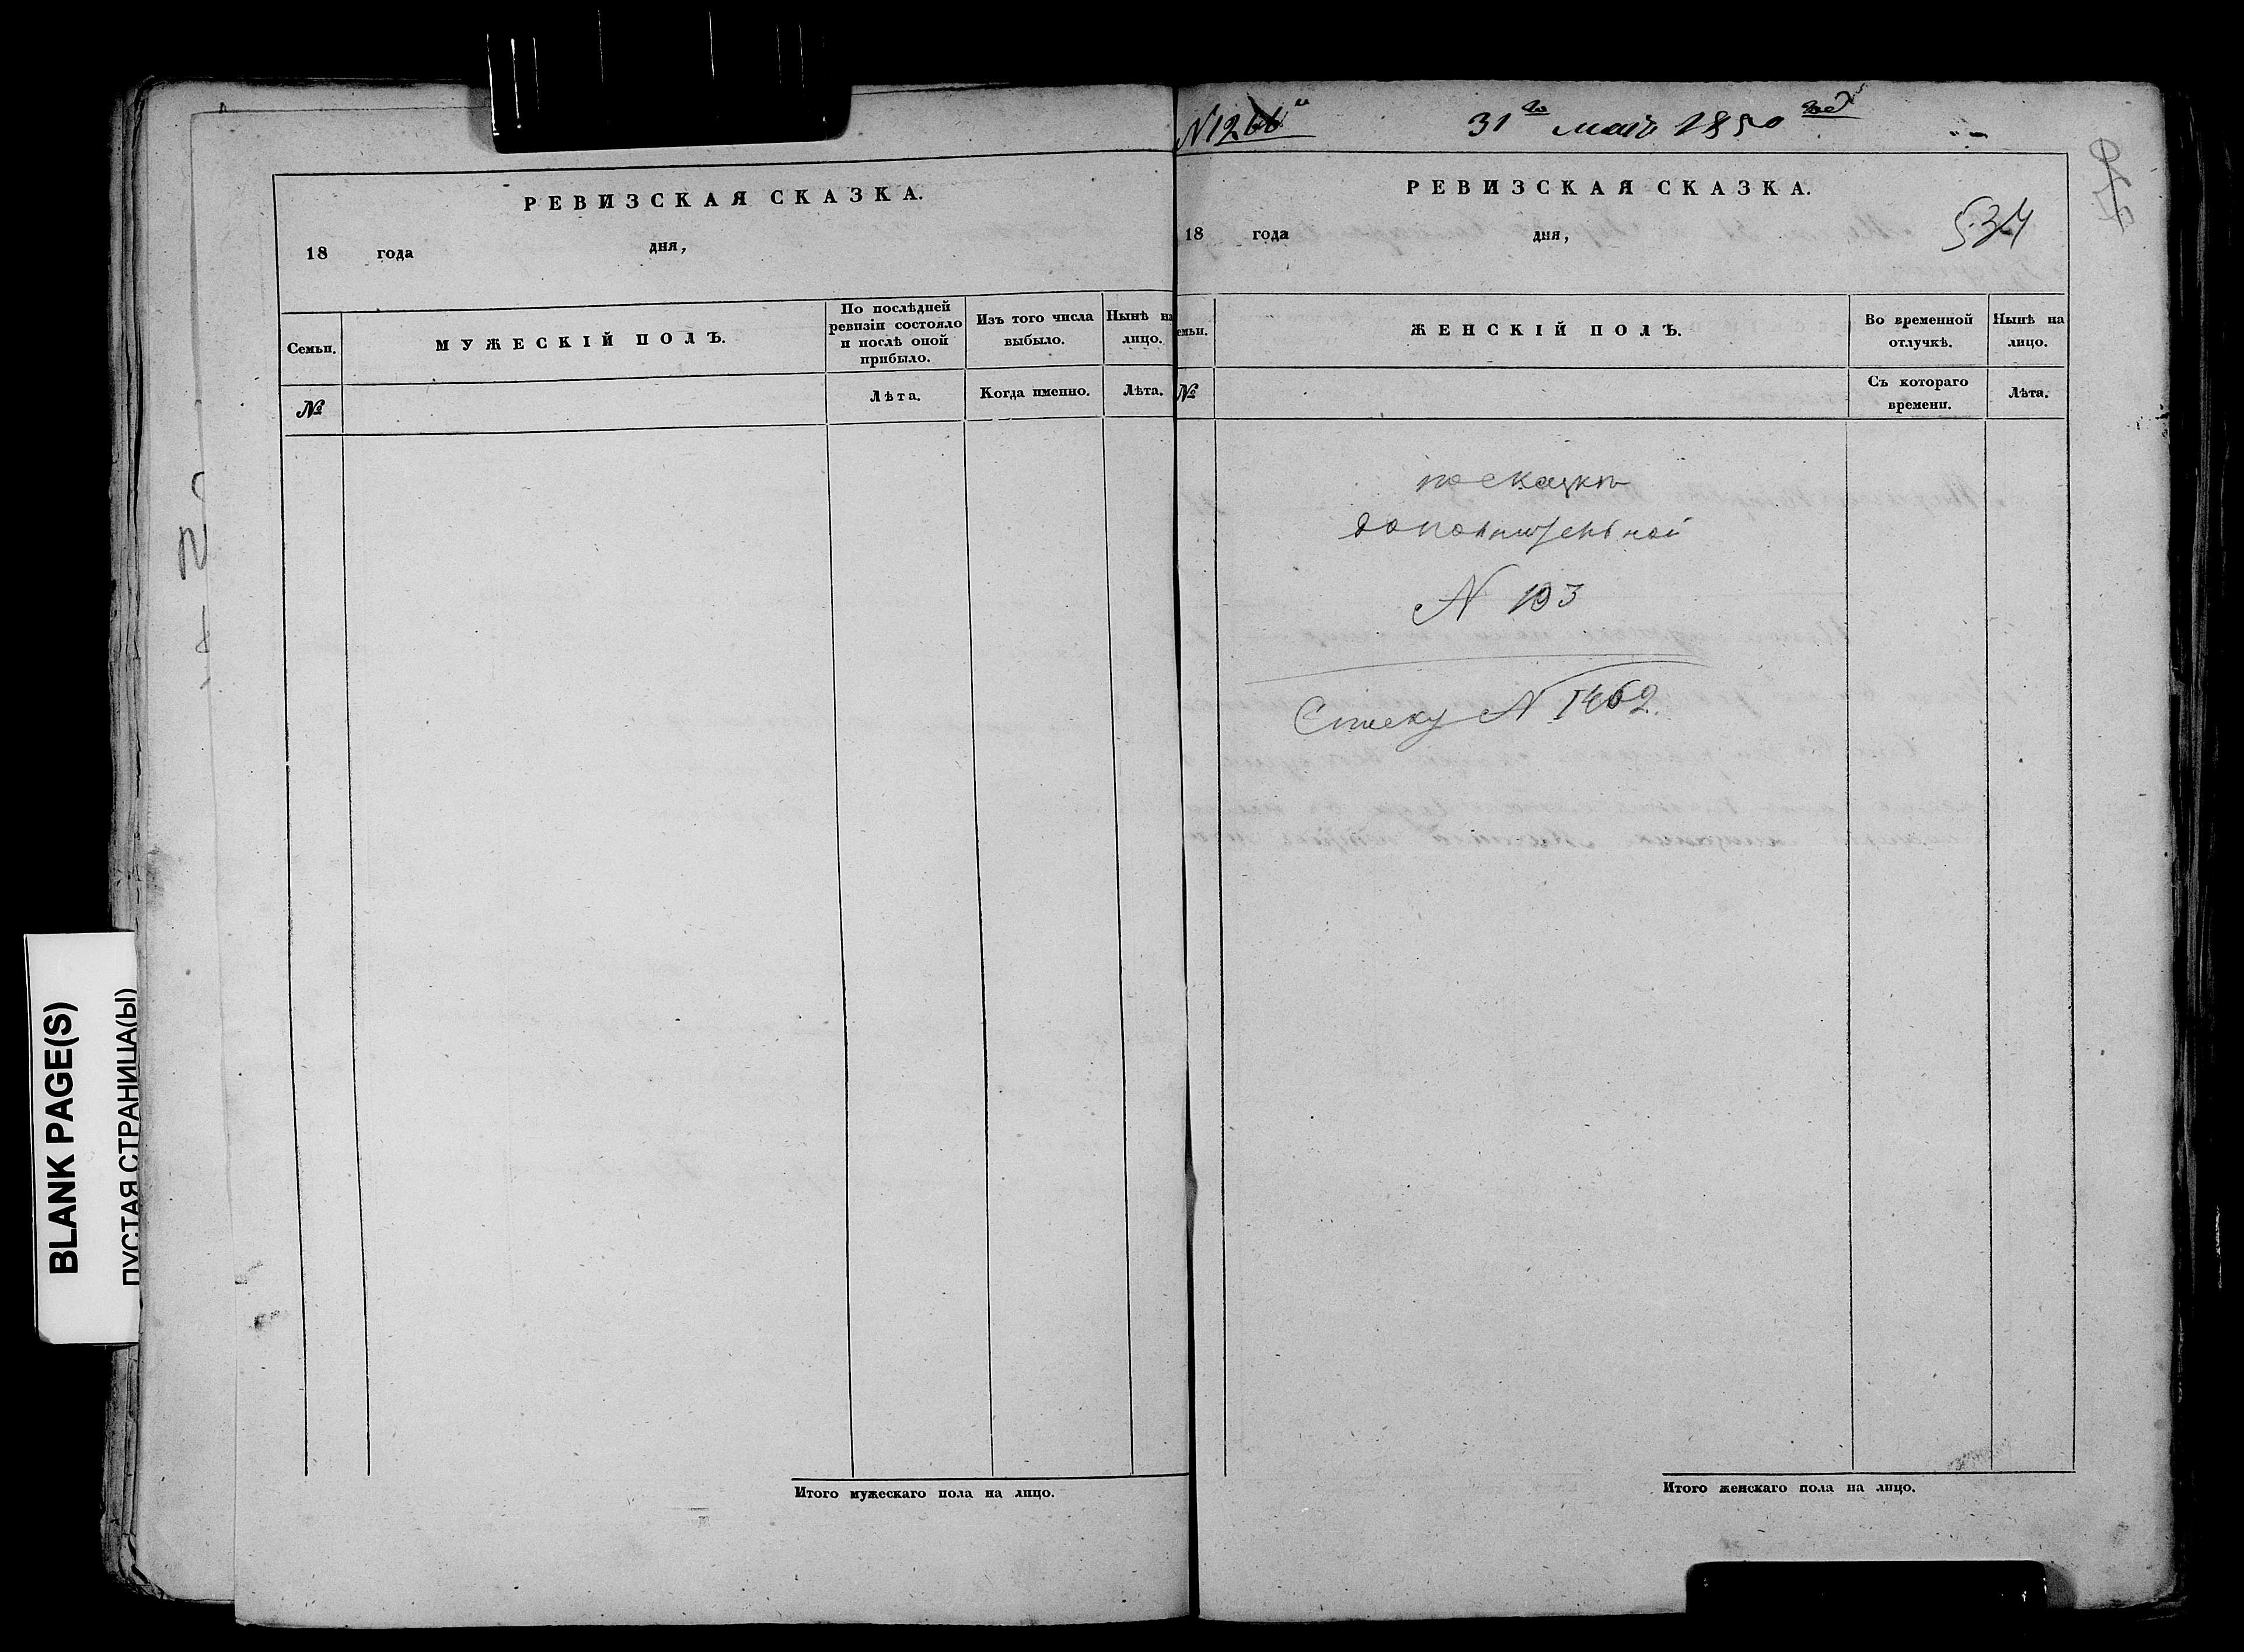 РЕВИЗСКАЯ СКАЗКА.
18 года дня,
Семьи. МУЖЕСКІЙ ПОЛЪ. По послѣдней ревизіи состояло и послѣ оной прибыло. Изъ того числа выбыло. Нынѣ на лицо.
№ Лѣта. Когда именно. Лѣта.
Итого мужескаго пола на лицо.
31го мая 1850 год
РЕВИЗСКАЯ СКАЗКА.
534
18 года дня,
емьи. ЖЕНСКІЙ ПОЛЪ. Во временной отлучкѣ. Нынѣ на лицо.
№ Съ котораго времени. Лѣта.
по скаցке
дополнительной
N 193
N 1462.
Итого женскаго пола на лицо.
BLANK PAGE(S)
ПУСТАЯ СТРАНИЦА(Ы)